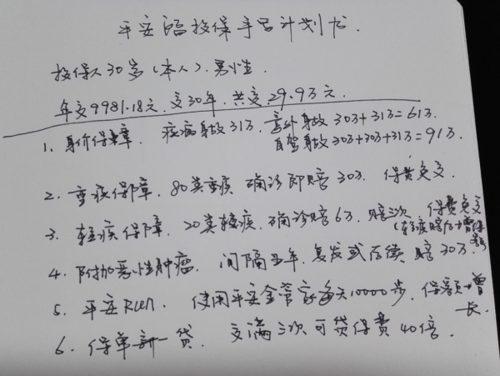 平安福投保手写计划书.
投保人30岁(本人).男性
年交9981.18元.交30年.共交29.9万元.
1、身价保障. 疾病身故31万. 意外身故 30万+31万=61万.
自驾身故30万+30万+31万=91万.
2、重疾保障. 80类重疾 确诊即赔30万. 保费免交
3、轻疾保障. 20类轻疾.确诊赔6万.赔三次 保费免交
(轻疾赔后+重疾
4、附加恶性肿瘤. 间隔五年.复发或存续 赔30万.
5、平安RUN. 使用平安金管家每天10000步.保额+增长.
6、保单新一贷. 交满三次可贷保费40倍.